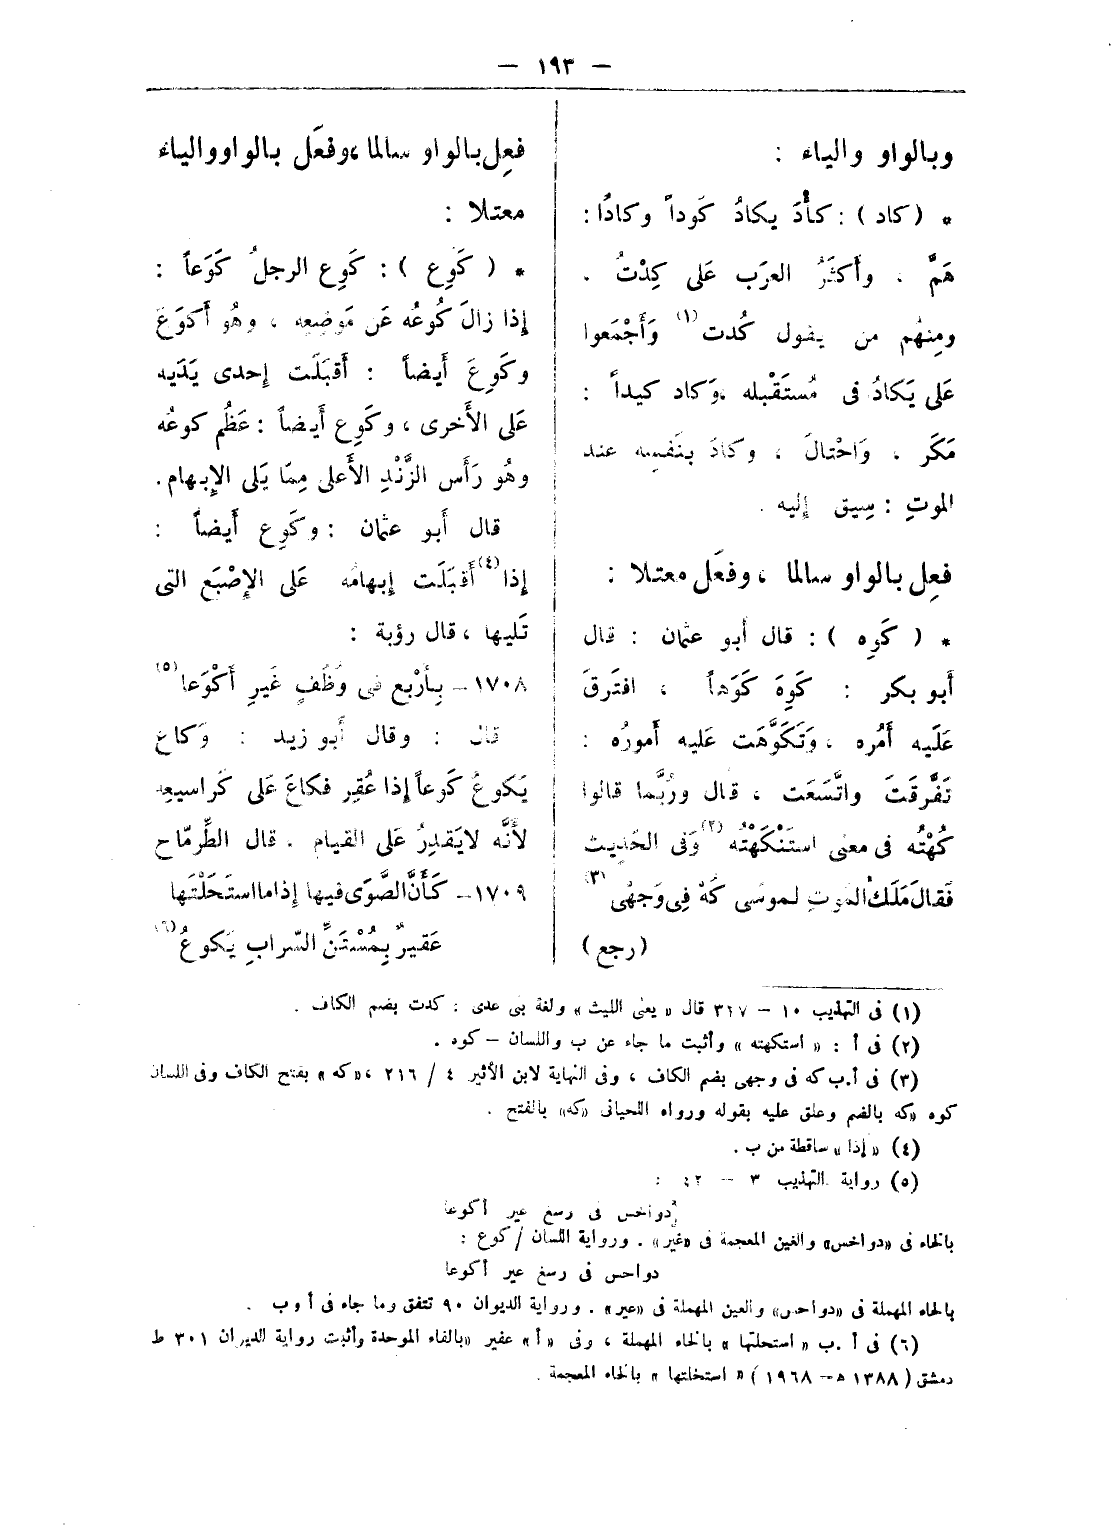 — ١٩٣ —
وبالواو والياء :
* ( كاد ) : كأدَ يكادُ كَوداً وكادًا :
هَمَّ ، وأَكثَرُ العرَب عَلى كِدْتُ .
ومِنهُم من يقول كُدت(١) وَأَجْمَعوا
عَلى يَكادُ فى مُستَقْبله ،وَكاد كيداً :
مَكَر ، وَاحْتالَ ، وكادَ بنَفسِه عند
الموتِ : سِيق إليه .
فعِل بالواو سالما ، وفعَل معتلا :
* ( كَوِه ) : قال أَبو عثمان : قال
أَبو بكر : كَوِهَ كَوَهاً ، افتَرقَ
عَلَيه أَمُره ، وَتَكَوَّهَت عَليه أُمورُه :
تَفَرَّقَتَ واتَّسَعَت ، قال ورُبَّما قالوا
كُهْتُه فى معنى استَنْكَهْتُه(٢) وَفى الحَديث
فَقالَ مَلَكُ الموتِ لموسَى كَهْ فِى وَجهْى(٣)
(رجع)
فعِل بالواو سالما ،وفعَل بالواووالياء
معتلا :
* ( كَوِع ) : كَوِع الرجلُ كَوَعاً :
إذا زالَ كُوعُه عَن مَوضِعِه ، وهُو أَكوَعُ
وكَوِعَ أَيضاً : أَقبَلَت إحدى يَدَيه
عَلى الأَخرى ، وكَوِع أَيضاً : عَظُم كوعُه
وهُو رَأس الزَّنْدِ الأَعلى مِمّا يَلى الإبهام .
قال أَبو عثمان : وكَوِع أَيضاً :
إذا(٤) أَقبَلَت إبهامُه عَلى الإصْبَع التى
تَليها ، قال رؤبة :
١٧٠٨ – بِأَرْبع فى وظُفٍ غَيرِ أَكْوَعا(٥)
قال : وقال أَبو زيد : وَكاع
يَكوعُ كَوعاً إذا عُقِر فكاعَ عَلى كَراسيعِه
لأَنَّه لايَقدِرُ عَلى القيام . قال الطِّرمّاح
١٧٠٩ – كَأَنَّ الصُّوَى فيها إذا ما استَحَلْتَها
عَقيرٌ بِمُسْتَنِّ السَّرابِ يَكوعُ(٦)
(١) فى التهذيب ١٠ – ٣٢٧ قال « يعنى الليث » ولغة بنى عدى : كدت بضم الكاف .
(٢) فى أ : « استكهته » وأثبت ما جاء عن ب واللسان – كوه .
(٣) فى أ.ب كه فى وجهى بضم الكاف ، وفى النهاية لابن الأثير ٤ / ٢١٦ ،«كه » بفتح الكاف وفى اللسان
كوه «كه بالضم وعلق عليه بقوله ورواه اللحيانى «كه» بالفتح .
(٤) « إذا » ساقطة من ب .
(٥) رواية التهذيب ٣ – ٤٢ :
دواخس فى رسغ غير أكوعا
بالخاء فى «دواخس» والغين المعجمة فى «غير» . ورواية اللسان / كوع :
دواحس فى رسغ عير أكوعا
بالحاء المهملة فى «دواحس» والعين المهملة فى «عير» . ورواية الديوان ٩٠ تتفق وما جاء فى أ و ب .
(٦) فى أ .ب « استحلتها » بالحاء المهملة ، وفى « أ » عفير «بالفاء الموحدة وأثبت رواية الديران ٣٠١ ط
دمشق ( ١٣٨٨ هـ – ١٩٦٨ ) « استخلتها » بالخاء المعجمة .